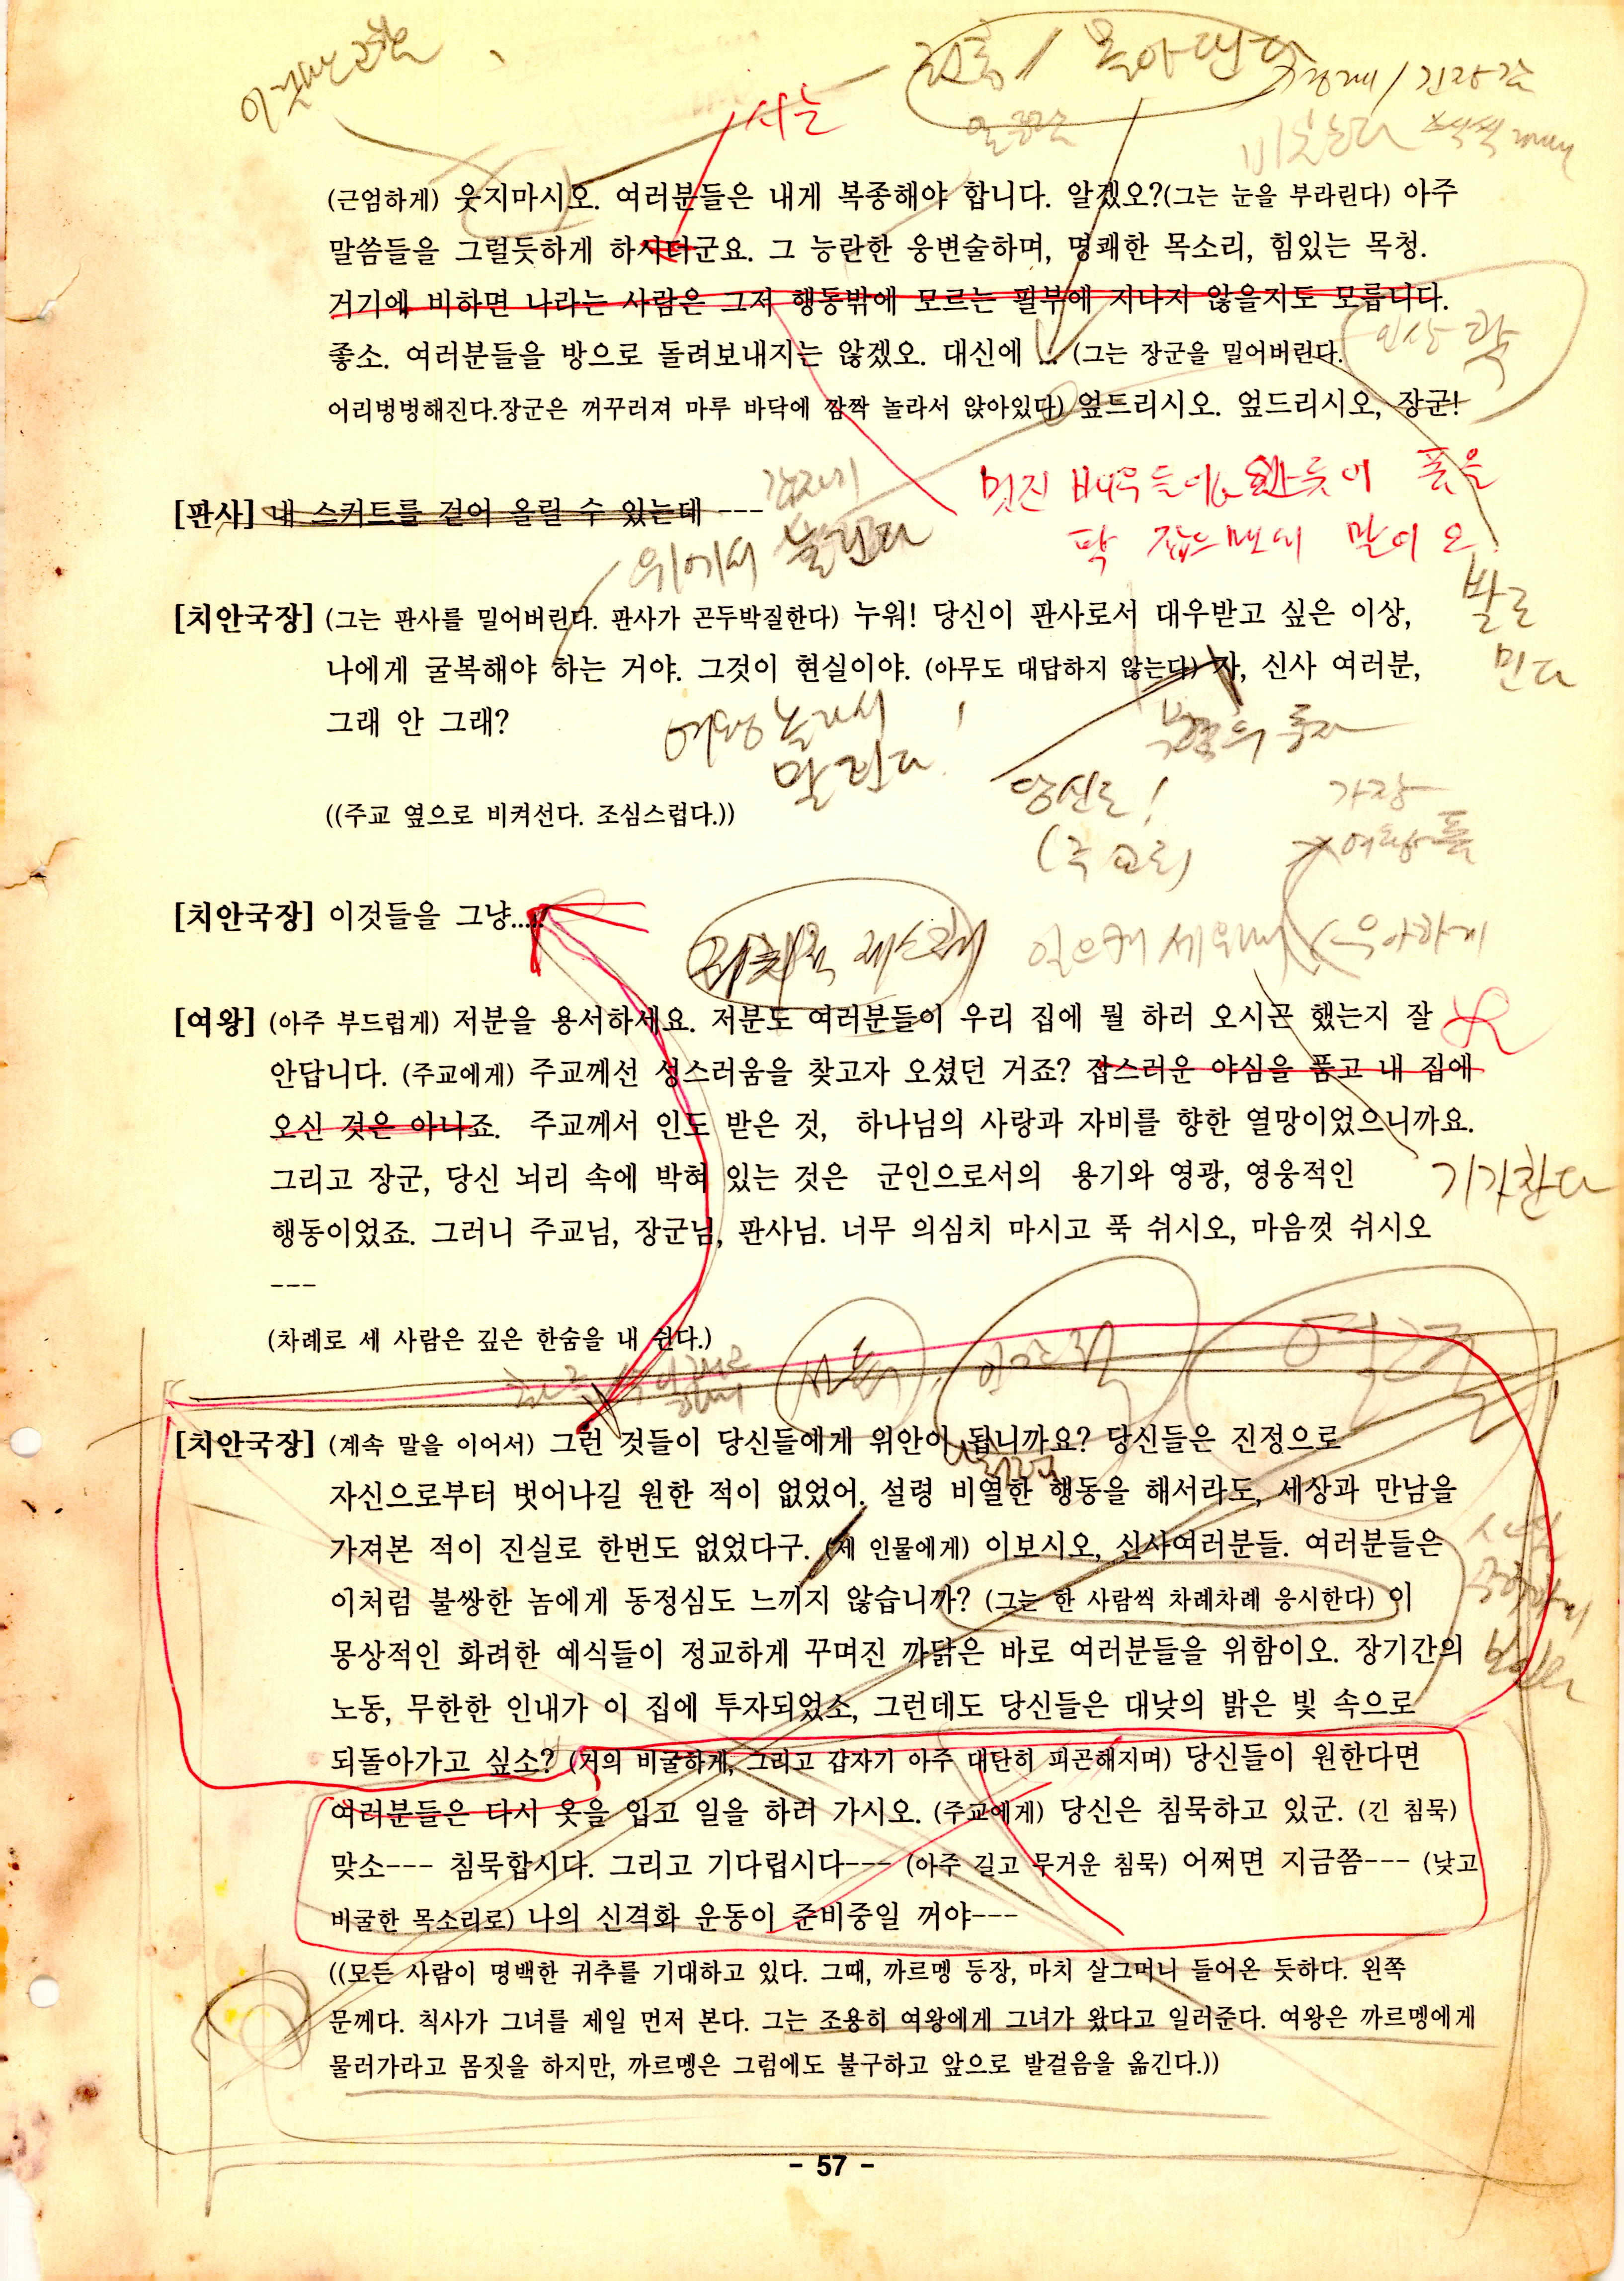 사는
(근엄하게) 웃지마시오. 여러분들은 내게 복종해야 합니다. 알겠오?(그는 눈을 부라린다) 아주
말씀들을 그럴듯하게 하시더군요. 그 능란한 웅변술하며, 명쾌한 목소리, 힘있는 목청.
거기에 비하면 나라는 사람은 그저 행동밖에 모르는 필부에 지나지 않을지도 모릅니다.
좋소. 여러분들을 방으로 돌려보내지는 않겠오. 대신에 ... (그는 장군을 밀어버린다.
인상 팍
어리벙벙해진다.장군은 꺼꾸러져 마루 바닥에 깜짝 놀라서 앉아있다) 엎드리시오. 엎드리시오, 장군!
갑자기
멋진 배우들에 폼을
[판사] 내 스커트를 걷어 올릴 수 있는데 ---
팍 잡으면서 말이오
위에서 눌린다
발로
민다
[치안국장] (그는 판사를 밀어버린다. 판사가 곤두박질한다) 누워! 당신이 판사로서 대우받고 싶은 이상,
나에게 굴복해야 하는 거야. 그것이 현실이야. (아무도 대답하지 않는다) 자, 신사 여러분,
그래 안 그래?
여왕 놀라서
말린다!
당신도!
가장
((주교 옆으로 비켜선다. 조심스럽다.))
[치안국장] 이것들을 그냥....
일으켜 세우며
우아하게
[여왕] (아주 부드럽게) 저분을 용서하세요. 저분도 여러분들이 우리 집에 뭘 하러 오시곤 했는지 잘
안답니다. (주교에게) 주교께선 성스러움을 찾고자 오셨던 거죠? 잡스러운 야심을 품고 내 집에
오신 것은 아니죠. 주교께서 인도 받은 것, 하나님의 사랑과 자비를 향한 열망이었으니까요.
그리고 장군, 당신 뇌리 속에 박혀 있는 것은 군인으로서의 용기와 영광, 영웅적인
기가찬다
행동이었죠. 그러니 주교님, 장군님, 판사님. 너무 의심치 마시고 푹 쉬시오, 마음껏 쉬시오
---
(차례로 세 사람은 깊은 한숨을 내 쉰다.)
[치안국장] (계속 말을 이어서) 그런 것들이 당신들에게 위안이 됩니까요? 당신들은 진정으로
자신으로부터 벗어나길 원한 적이 없었어. 설령 비열한 행동을 해서라도, 세상과 만남을
가져본 적이 진실로 한번도 없었다구. (세 인물에게) 이보시오, 신사여러분들. 여러분들은
이처럼 불쌍한 놈에게 동정심도 느끼지 않습니까? (그는 한 사람씩 차례차례 응시한다) 이
몽상적인 화려한 예식들이 정교하게 꾸며진 까닭은 바로 여러분들을 위함이오. 장기간의
노동, 무한한 인내가 이 집에 투자되었소, 그런데도 당신들은 대낮의 밝은 빛 속으로
되돌아가고 싶소? (거의 비굴하게, 그리고 갑자기 아주 대단히 피곤해지며) 당신들이 원한다면
여러분들은 다시 옷을 입고 일을 하러 가시오. (주교에게) 당신은 침묵하고 있군. (긴 침묵)
맞소--- 침묵합시다. 그리고 기다립시다--- (아주 길고 무거운 침묵) 어쩌면 지금쯤--- (낮고
비굴한 목소리로) 나의 신격화 운동이 준비중일 꺼야---
((모든 사람이 명백한 귀추를 기대하고 있다. 그때, 까르멩 등장, 마치 살그머니 들어온 듯하다. 왼쪽
문께다. 칙사가 그녀를 제일 먼저 본다. 그는 조용히 여왕에게 그녀가 왔다고 일러준다. 여왕은 까르멩에게
물러가라고 몸짓을 하지만, 까르멩은 그럼에도 불구하고 앞으로 발걸음을 옮긴다.))
- 57 -